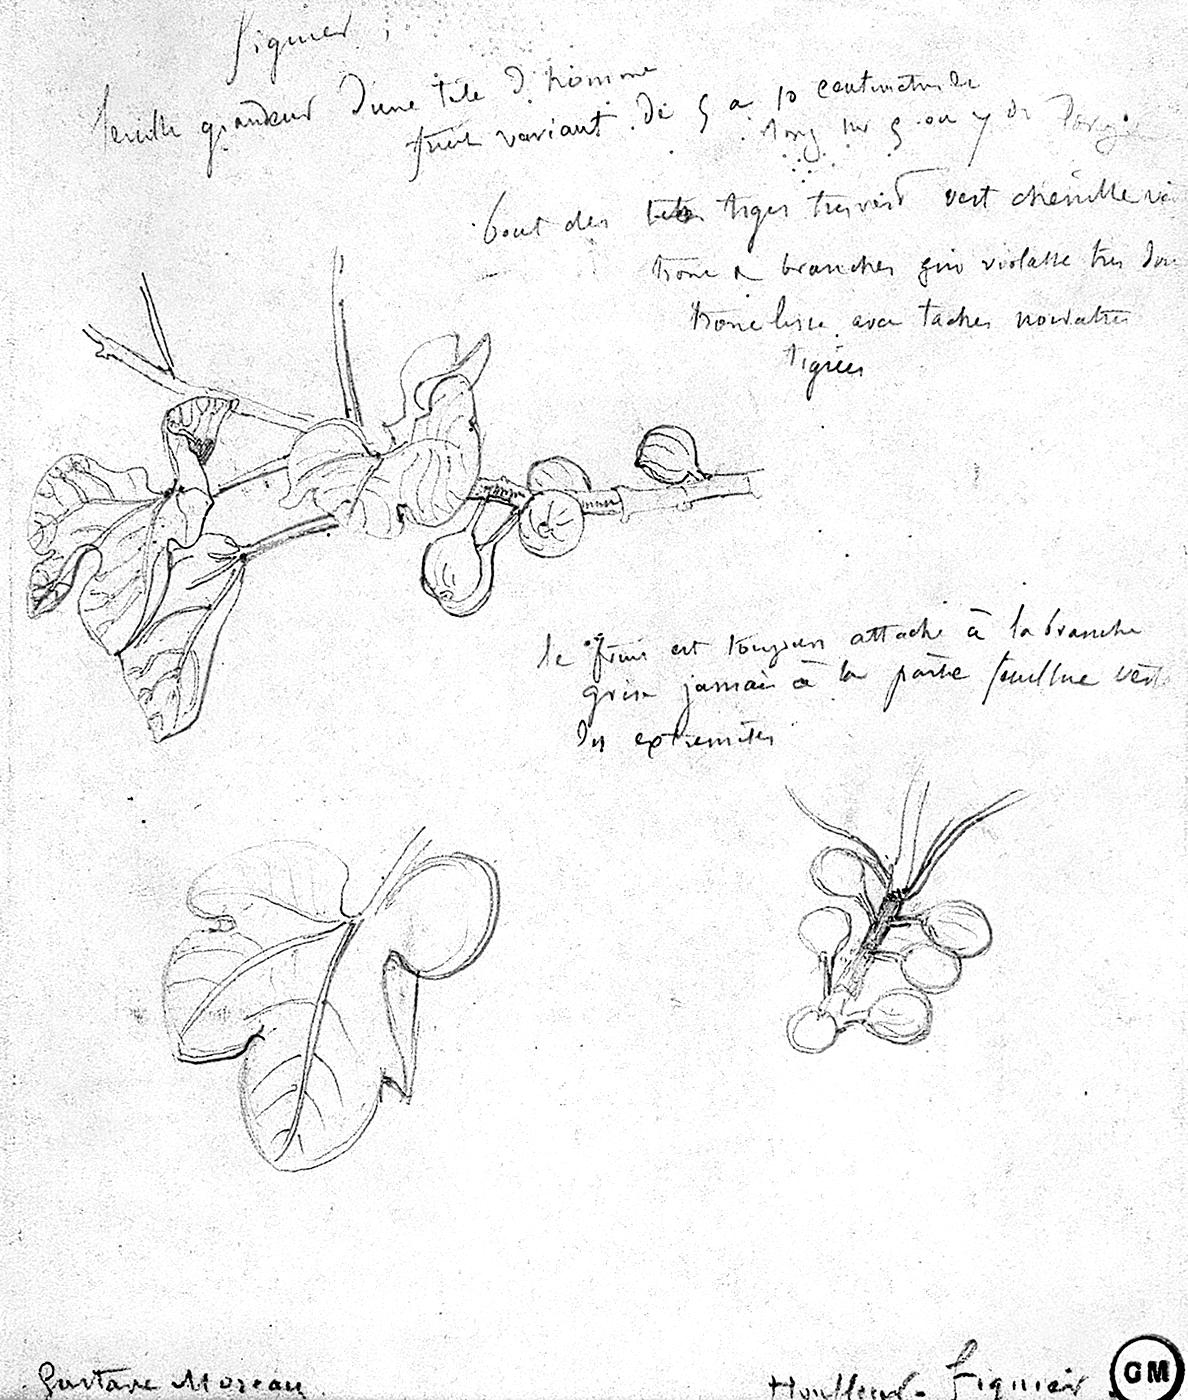 figuier
feuille grandeur d'une tete d'homme
fruit variant de 5 a 10 centimetres de
long sur 5 ou 7 de large
bout des tiges tres vert vert chenille
tronc a branches gris violatre tres
tronc lisse avec taches noiratres
tigrées
le fruit est toujours attaché à la branche
grise jamais à la partie feuillue verte
des extremites
Gustave Moreau
Honfleur - Figuier
GM